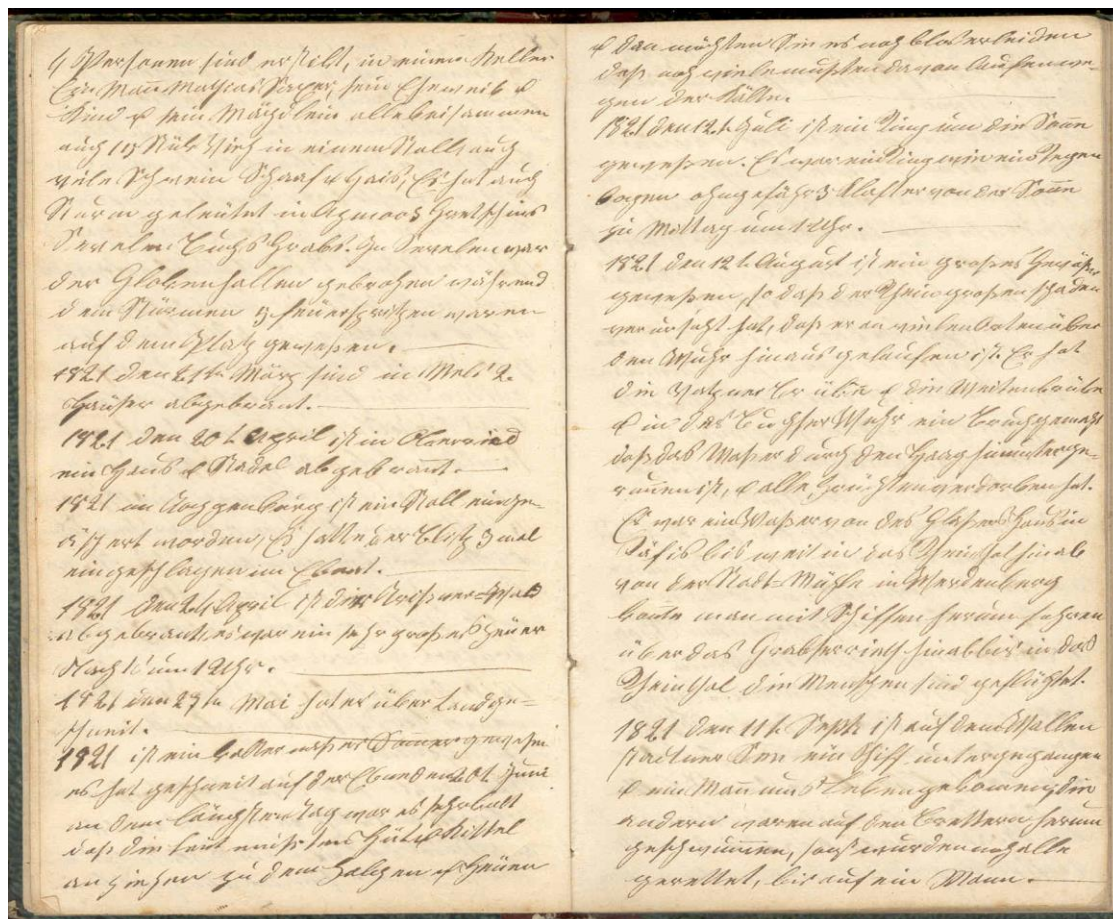 4 Personen sind erstikt, in einem Keller
Ein Mañ Mathias Saxer, sein Eheweib &
Kind & sein Mägdlein alle beisammen
auch 10 Stük Vieh in einem Stall, auch
viele Schwein Schaaf & Gais, Es hat auch
Sturm geleütet in Azmoos Gretschins
Sevelen Buchs Grabs. In Sevelen war
der Glokenhallen gebrochen während
dem Stürmen 9 feüerspritzen waren
auf dem Platz gewesen.
1821 den 21t März sind in Mels 2
Häuser abgebrant.
1821 den 20t April ist in Oberried
ein Haus & Stadel abgebrañt.
1821 im Toggenburg ist ein Stall einge-
äschert worden, Es hatte der Blitz 3 mal
eingeschlagen im
1821 den 24 April ist der Wald
abgebrant, es war ein sehr großes Feüer
Nachts um 1 Uhr.
1821 den 27ten Mai hat es über Land ge-
schneit.
1821 ist ein kalter naßer Somer gewesen
es hat geschneit auf der Ebne den 20t Juni
an dem längsten Tag war es sehr kalt
daß die Leut mußten Hüt & Kittel
anziehen zu dem & Heüen
& dan mochten Sie es noch blos erleiden
daß noch viele mußten davon laufen we-
gen der Kälte.
1821 den 12t Juli ist ein Ring um die Soñe
gewesen. Es war ein Ring wie ein Regen
bogen ohngefähr 3 Klafter von der Soñe
zu Mittag um 1 Uhr.
1821 den 12t August ist ein großes Gewäßer
gewesen, so daß der Rhein großen schaden
verursacht hat, daß er an vielen Orten über
den Wuhr hinaus gelaufen ist. Er hat
die & die Weitenbrüke
& in das Buchser Wuhr ein Bruch gemacht
daß das Waßer durch den Haag hinunter ge-
runnen ist, & alle früchten verdorben hat.
Es war ein Waßer von des Glasers Haus in
Räfis bis weit in das Rheinthal hinab
von der Stadt-Mühle in Werdenberg
konte man mit Schiffen herum fahren
über das Grabserrieth hinab bis in das
Rheinthal die Menschen sind geflüchtet.
1821 den 11t Sept. ist auf dem Wallen
stattner See ein Schiff untergegangen
& ein Mañ ums Leben gekommen, die
andern waren auf den Brettern herum
geschwummen, sonst wurden noch alle
gerettet, bis auf ein Mann.